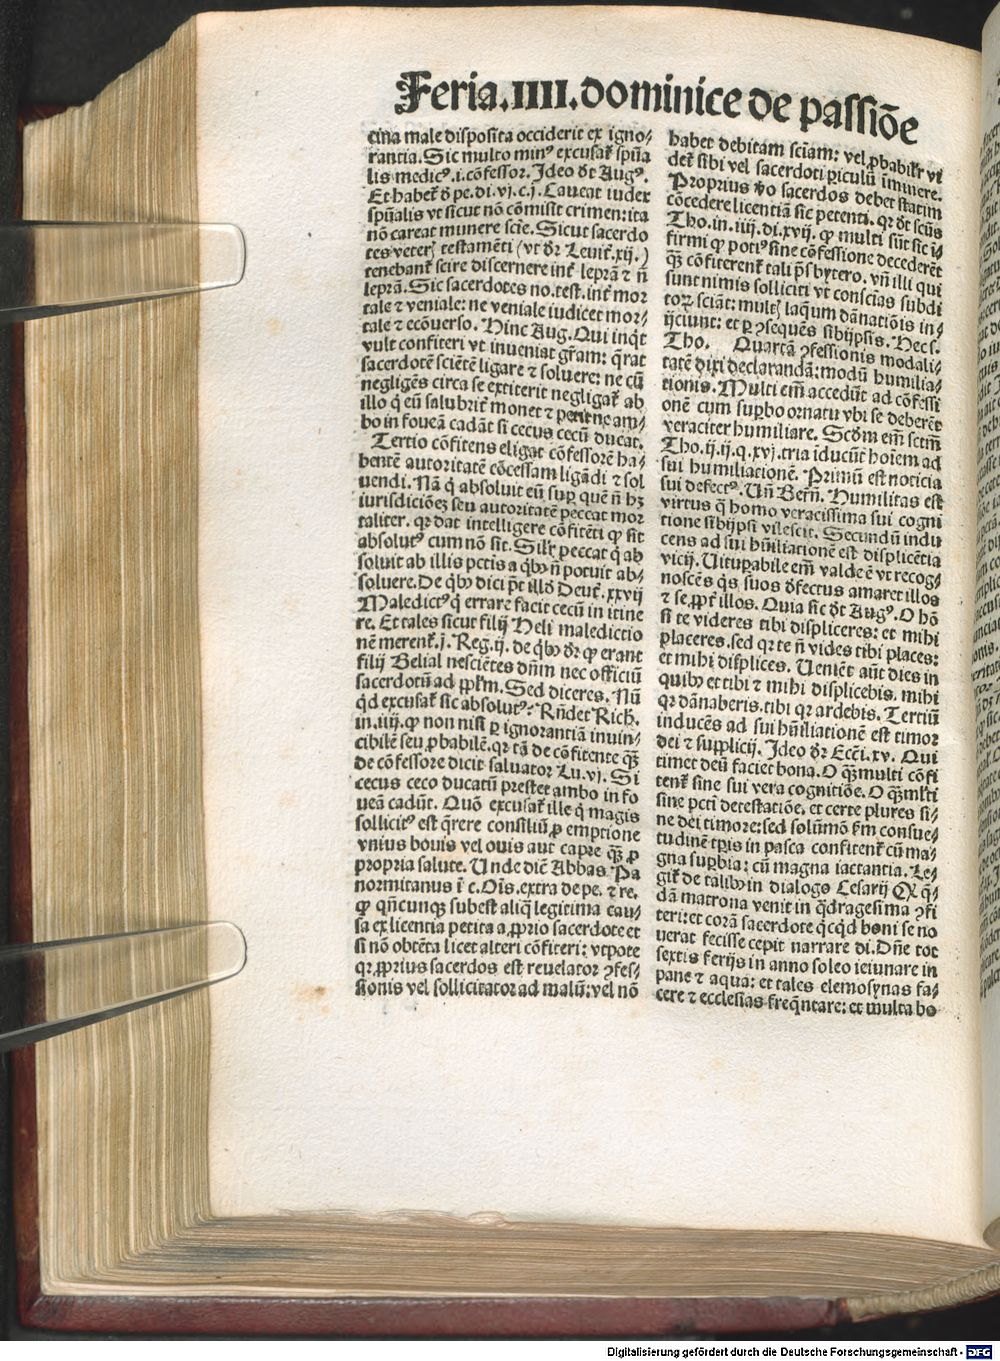 Feria.IIII.dominice de passiōe
cina male disposita occiderit ex igno/
rantia. Sic multo minꝰ excusat̄ spūa
lis medicꝰ.i.cōfessor. Ideo dt̄ Augꝰ.
Et habet̄ d̄ pe.di.vj.c.j. Caueat iudex
spūalis vt sicut nō cōmisit crimen: ita
nō careat munere scīe. Sicut sacerdo
tes veterꝭ testamēti (vt dr̄ Leuit̄.xij.)
tenebant̄ scire discernere int̄ leprā ⁊ nō
leprā. Sic sacerdotes no.test.int̄ mor
tale ⁊ veniale: ne veniale iudicet mor/
tale ⁊ ecōuerso. Hinc Aug. Qui inq̄t
vult confiteri vt inueniat gr̄am: q̄rat
sacerdotē sciētē ligare ⁊ soluere: ne cū
negligēs circa se extiterit negligat̄ ab
illo q̇ eū salubrit̄ monet ⁊ petit ne am/
bo in foueā cadāt si cecus cecū ducat.
Tertio cōfitens eligat cōfessorē ha/
bentē autoritatē cōcessam ligādi ⁊ sol
uendi. Nā q̇ absoluit eū suꝑ quē nō hꝫ
iurisdictiōeꝫ seu autoritatē peccat mor
taliter. qꝛ dat intelligere cōfitēti ꝙ sit
absolutꝰ cum nō sit. Silr̄ peccat q̇ ab
soluit ab illis pctīs a qͥbꝰ nō potuit ab/
soluere. De qͥbꝰ dici pt̄ illd̄ Deut̄.xxvij
Maledictꝰ q̇ errare facit cecū in itine
re. Et tales sicut filij Heli maledictio
nē merent̄.j. Reg.ij. de qͥbꝰ dr̄ ꝙ erant
filij Belial nesciētes dn̄m nec officiū
sacerdotū ad ppl̄m. Sed diceres. Nū
qͥd excusat̄ sic absolutꝰ? Rn̄det Rich.
in.iiij. ꝙ non nisi ꝑ ignorantiā inuin/
cibilē seu ꝓbabilē. qꝛ tā de cōfitente qꝫ̄
de cōfessore dicit saluator Lu.vj. Si
cecus ceco ducatū prestet ambo in fo
ueā cadūt. Quō excusat̄ ille q̇ magis
sollicitꝰ est q̄rere consiliū ꝓ emptione
vnius bouis vel ouis aut capre qꝫ̄ ꝓ
propria salute. Unde dicit Abbas Pa
normitanus ī c. Oīs.extra de pe. ⁊ re.
ꝙ qn̄cunqꝫ subest aliq̄ legitima cau/
sa ex licentia petita a ꝓprio sacerdote et
si nō obtēta licet alteri cōfiteri: vtpote
qꝛ ꝓprius sacerdos est reuelator ꝯfes/
sionis vel sollicitator ad malū: vel nō
habet debitam sciam: vel ꝓbabilr̄ vi
det̄ sibi vel sacerdoti ꝑiculū iminere.
Proprius ꝟo sacerdos debet statim
cōcedere licentiā sic petenti. qꝛ dt̄ scūs
Tho.in.iiij.di.xvij. ꝙ multi sūt sic i/
firmi ꝙ potiꝰ sine cōfessione decederēt
qꝫ̄ cōfiterent̄ tali p̄sbytero. vn̄ illi qui
sunt nimis solliciti vt conscias subdi
toꝝ sciāt: multꝭ laq̄um dānatiōis in/
ijciunt: et ꝑ ꝯsequēs sibijpsis. Hec s.
Tho. Quartā ꝯfessionis modali/
tatē dixi declarandā: modū humilia/
tionis. Multi em̄ accedūt ad cōfessi
onē cum suꝑbo ornatu vbi se deberēt
veraciter humiliare. Scd̄m em̄ sctm̄
Tho.ij.ij.q.xvj.tria iducūt hoīem ad
sui humiliationē. Primū est noticia
sui defectꝰ. Un̄ Bern̄. Humilitas est
virtus q̄ homo veracissima sui cogni
tione sibijpsi vilescit. Secundū indu
cens ad sui hūiliationē est displicētia
vicij. Uituꝑabile em̄ valde ē vt recog/
noscēs q̇s suos d̄fectus amaret illos
⁊ se ꝓpt̄ illos. Quia sic dt̄ Augꝰ. O hō
si te videres tibi displiceres: et mihi
placeres. sed qꝛ te nō vides tibi places:
et mihi displices. Ueniet aūt dies in
quibꝰ et tibi ⁊ mihi displicebis. mihi
qꝛ dānaberis. tibi qꝛ ardebis. Tertiū
inducēs ad sui hūiliationē est timor
dei ⁊ supplicij. Ideo dr̄ Ecci.xv. Qui
timet deū faciet bona. O qꝫ̄ multi cōfi
tent̄ sine sui vera cognitiōe. O qꝫ̄ ml̄ti
sine pcti detestatiōe. et certe plures si/
ne dei timore: sed solūmō fm̄ consue/
tudinē tp̄is in pasca confitent̄ cū ma/
gna suꝑbia: cū magna iactantia. Le/
git̄ de talibꝰ in dialogo Cesarij Ꝙ q̄/
dā matrona venit in q̄dragesima ꝯfi
teri: et corā sacerdote qͥcqͥd boni se no
uerat fecisse cepit narrare di. Dn̄e tot
sextis ferijs in anno soleo ieiunare in
pane ⁊ aqua: et tales elemosynas fa/
cere ⁊ ecclesias freq̄ntare: et multa bo
Digitalisierung gefördert durch die Deutsche Forschungsgemeinschaft - DFG